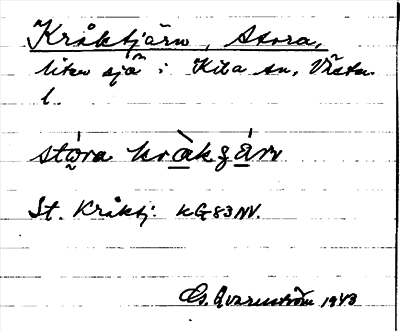 Kråktjärn, Stora,
liten sjö i Kila sn, Västm.
l.
stọ́ra kràkʒárn
St. Kråktj: KG83NV.
Qvarnström 1943